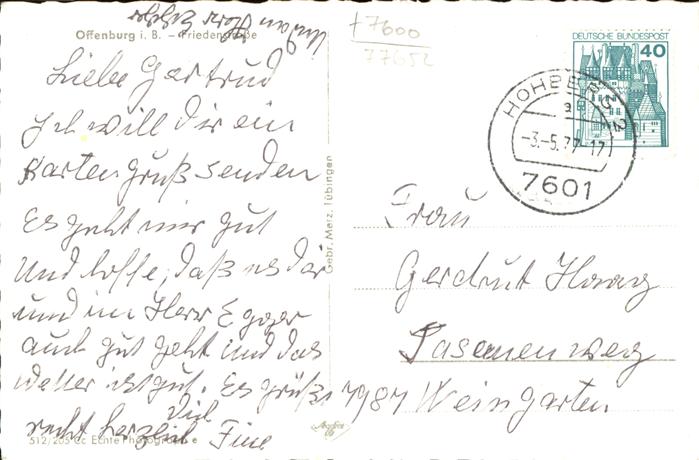 Offenburg i. B. – Friedenstraße
Liebe Gertrud
Ich will dir ein
Kartengruß senden
Es geht mir gut
und hoffe, daß es dir
und im Herr Egger
auch gut geht und das
wetter ist gut. Es grüßt
dich
recht herzlich Fine
512/205 Cc Echte Photographie
Gebr. Metz, Tübingen
+7600
77652
DEUTSCHE BUNDESPOST
40
HOHBE
a
-3.-5.77-17
7601
Frau
Gerdrut Haag
7987 Weingarten.